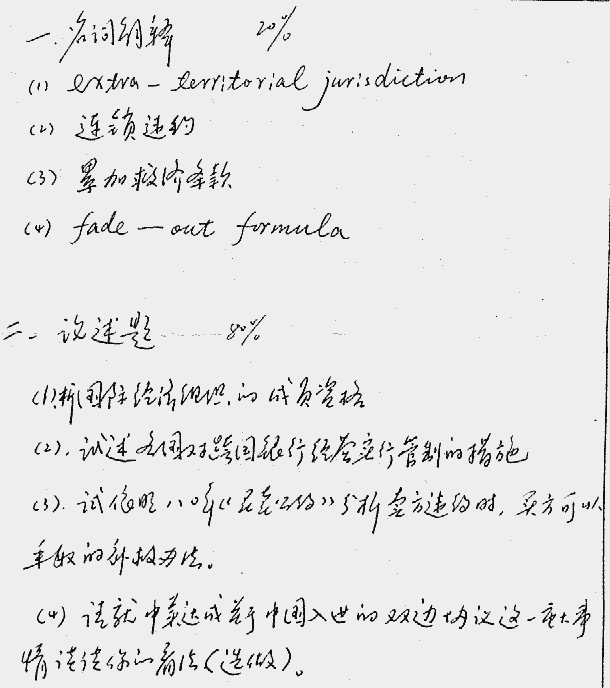 一. 名词解释 20%
(1) extra-territorial jurisdiction
(2) 连锁违约
(3) 累加救济条款
(4) fade-out formula
二. 论述题 80%
(1) 析国际经济组织的成员资格
(2). 试述各国对跨国银行经营实行管制的措施
(3). 试依照80年《买卖公约》分析卖方违约时, 买方可以
采取的补救办法。
(4) 请就中美达成关于中国入世的双边协议这一重大事
情谈谈你的看法(选做)。